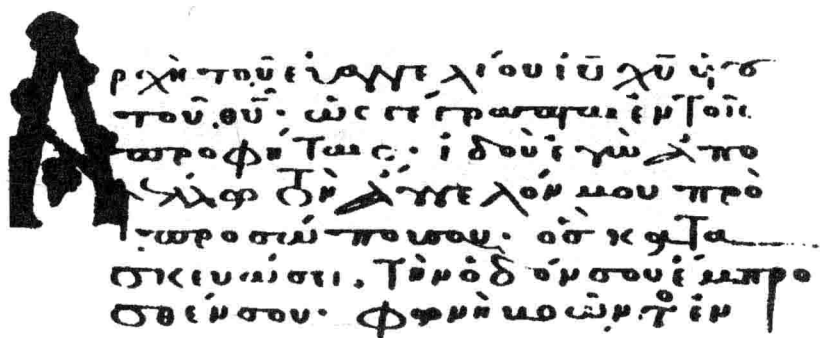 Ἀρχὴ τοῦ εὐαγγελίου ἰῦ χῦ ὑιοῦ
τοῦ θῦ· ὡς γέγραπται ἐν τοῖς
προφήταις· ἰδοὺ ἐγὼ ἀπο
στέλλω τὸν ἄγγελόν μου πρὸ
προσώπου σου· ὃς κατα
σκευάσει τὴν ὁδόν σου ἔμπρο
σθέν σου· φωνὴ βοῶντος ἐν